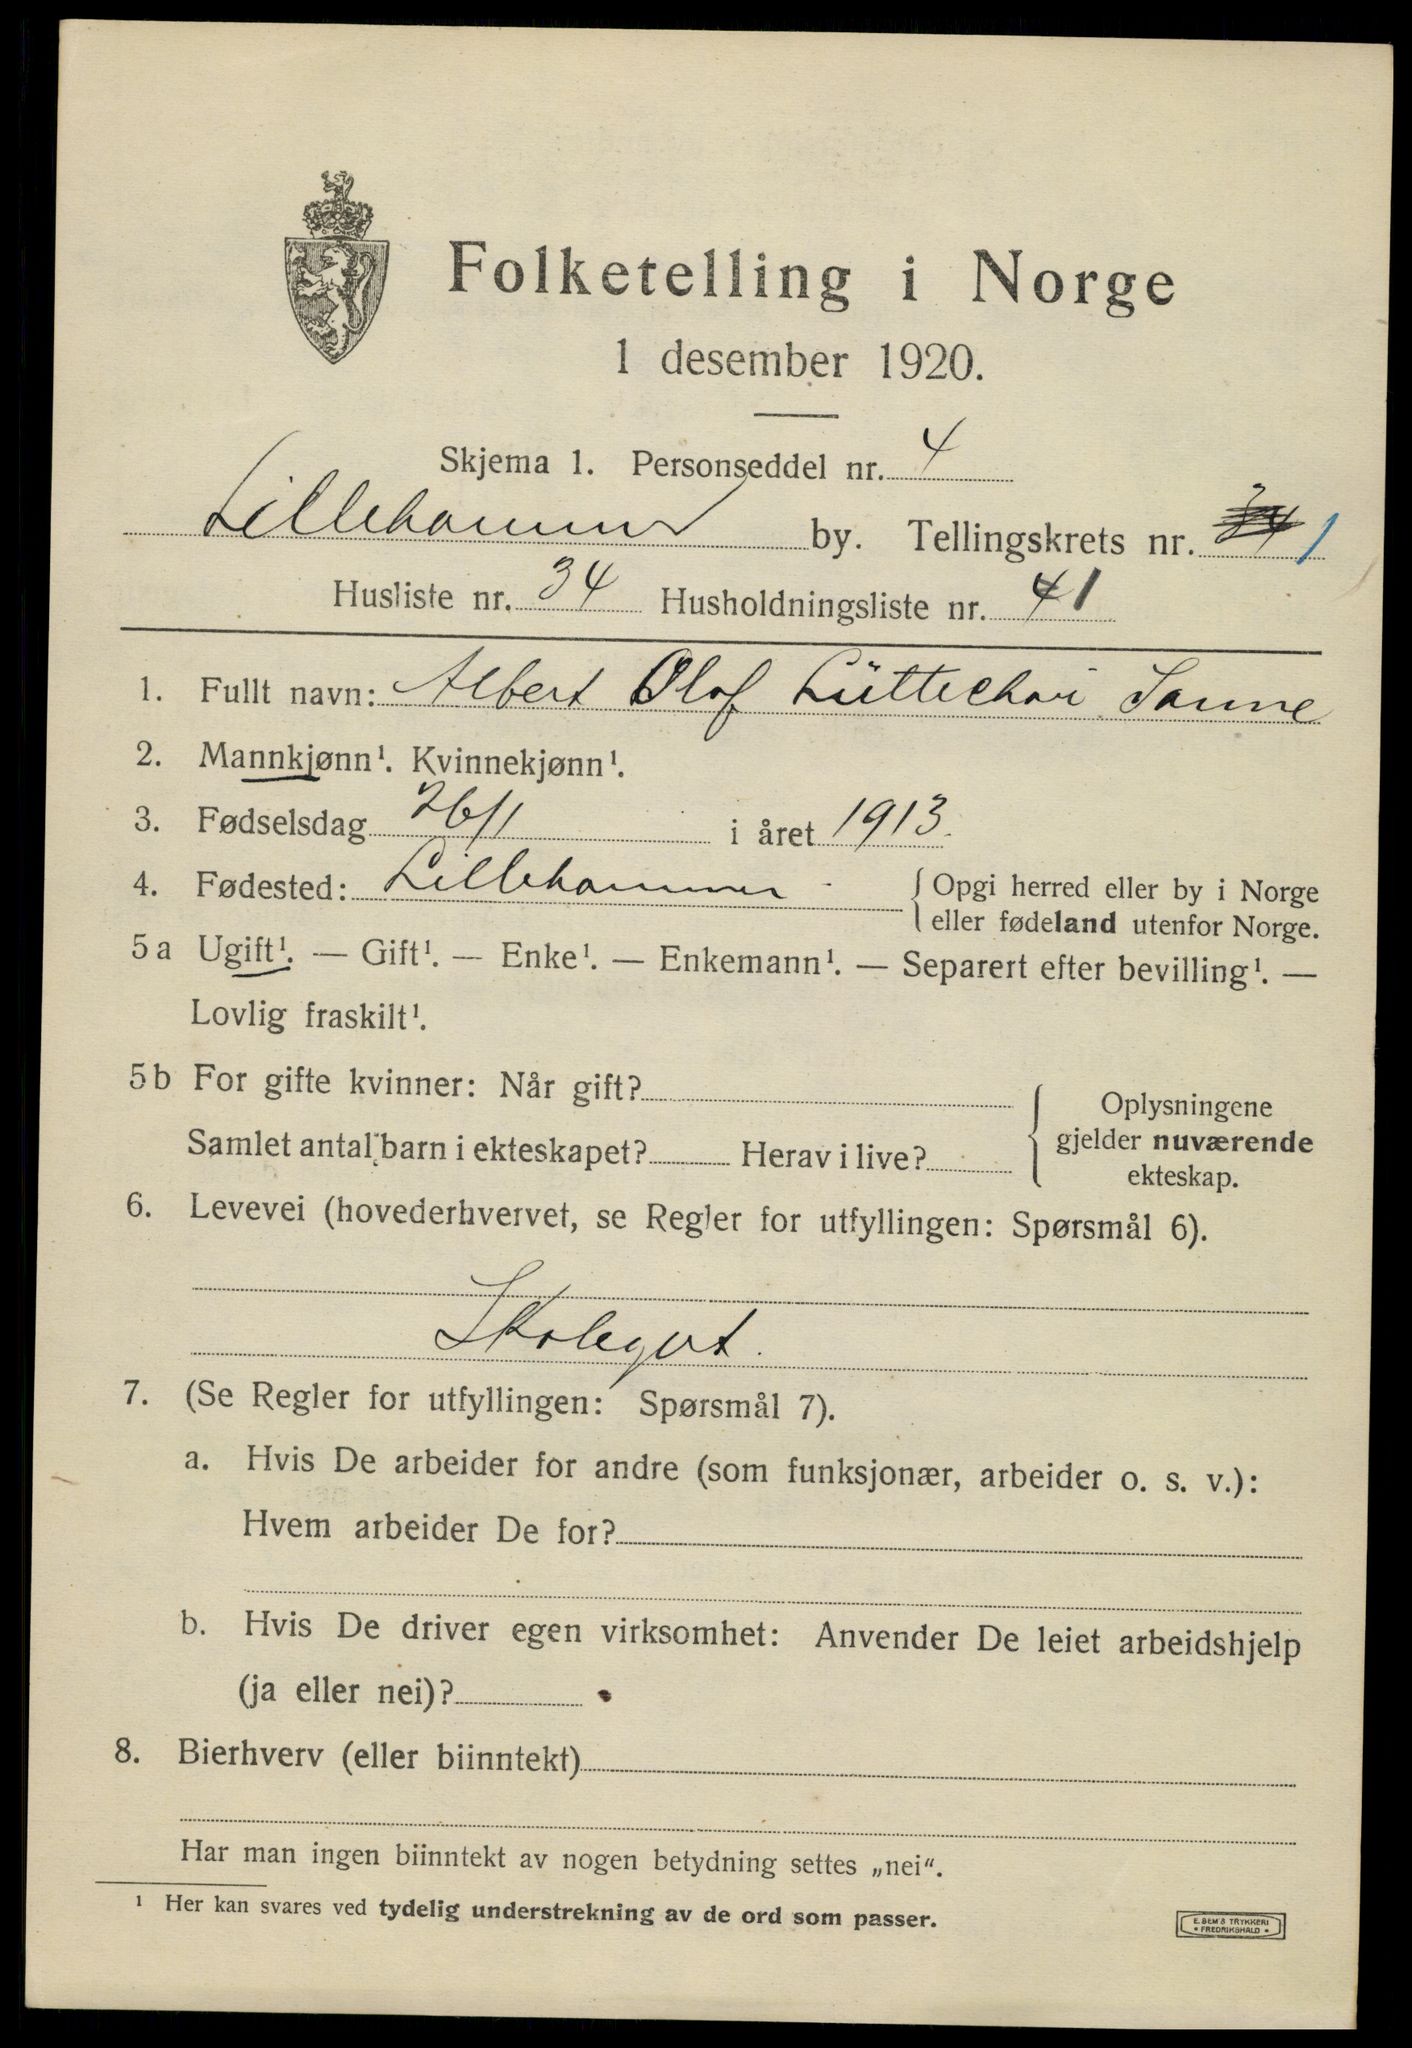 Folketelling i Norge
1 desember 1920.
Skjema 1. Personseddel nr. 4
Lillehammer by. Tellingskrets nr. 1
Husliste nr. 34 Husholdningsliste nr. 41
1. Fullt navn: Albert Olof Lüttichau Sanne
2. Mannkjønn¹. Kvinnekjønn¹.
3. Fødselsdag 26/1 i året 1913.
4. Fødested: Lillehammer { Opgi herred eller by i Norge
eller fødeland utenfor Norge.
5a Ugift¹. — Gift¹. — Enke¹. — Enkemann¹. — Separert efter bevilling¹. —
Lovlig fraskilt¹.
5b For gifte kvinner: Når gift?
Samlet antal barn i ekteskapet? Herav i live?
Oplysningene
gjelder nuværende
ekteskap.
6. Levevei (hovederhvervet, se Regler for utfyllingen: Spørsmål 6).
Skolegut.
7. (Se Regler for utfyllingen: Spørsmål 7).
a. Hvis De arbeider for andre (som funksjonær, arbeider o. s. v.):
Hvem arbeider De for?
b. Hvis De driver egen virksomhet: Anvender De leiet arbeidshjelp
(ja eller nei)?
8. Bierhverv (eller biinntekt)
Har man ingen biinntekt av nogen betydning settes „nei“.
¹ Her kan svares ved tydelig understrekning av de ord som passer.
E. SEM'S TRYKKERI
• FREDRIKSHALD •